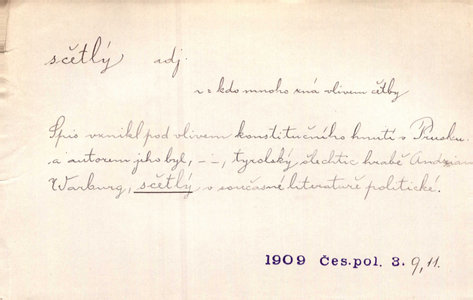 sčetlý adj.
= kdo mnoho zná vlivem četby
Spis vznikl pod vlivem konstitučního hnutí v Prusku
a autorem jeho byl, – –, tyrolský šlechtic hrabě Andrian
Warburg, sčetlý v současné literatuře politické.
1909 Čes.pol. 3. 9, 11.